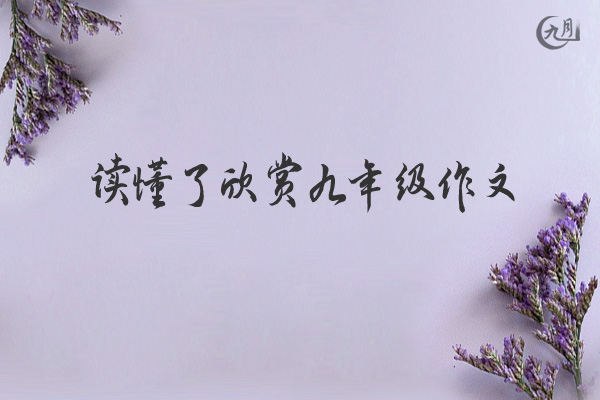 九月
读懂了欣赏九年级作文